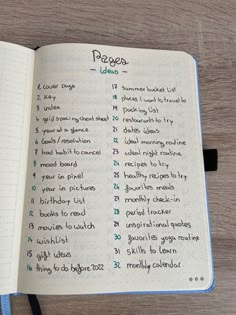 Pages
- Ideas -
1 cover page
2 key
3 index
4 grid spacing cheat sheet
5 year at a glance
6 Goals / resolution
7 bad habit to cancel
8 mood board
9 year in pixel
10 year in pictures
11 birthday list
12 books to read
13 movies to watch
14 wishlist
15 gift ideas
16 thing to do before 2022
17 summer bucket list
18 places I want to travel to
19 packing list
20 restaurants to try
21 dates ideas
22 ideal morning routine
23 ideal night routine
24 recipes to try
25 healthy recipes to try
26 favorites meals
27 monthly check-in
28 period tracker
29 inspirational quotes
30 favorites yoga routine
31 skills to learn
32 monthly calendar